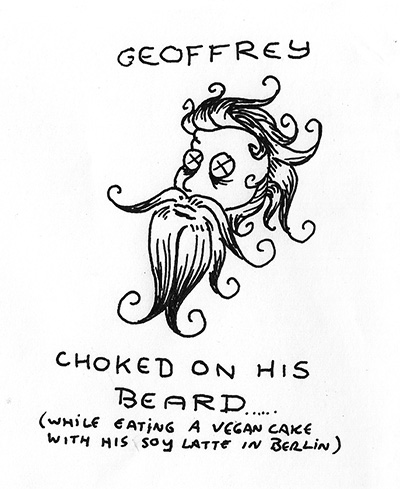 GEOFFREY
CHOKED ON HIS
BEARD.....
(WHILE EATING A VEGAN CAKE
WITH HIS SOY LATTE IN BERLIN)